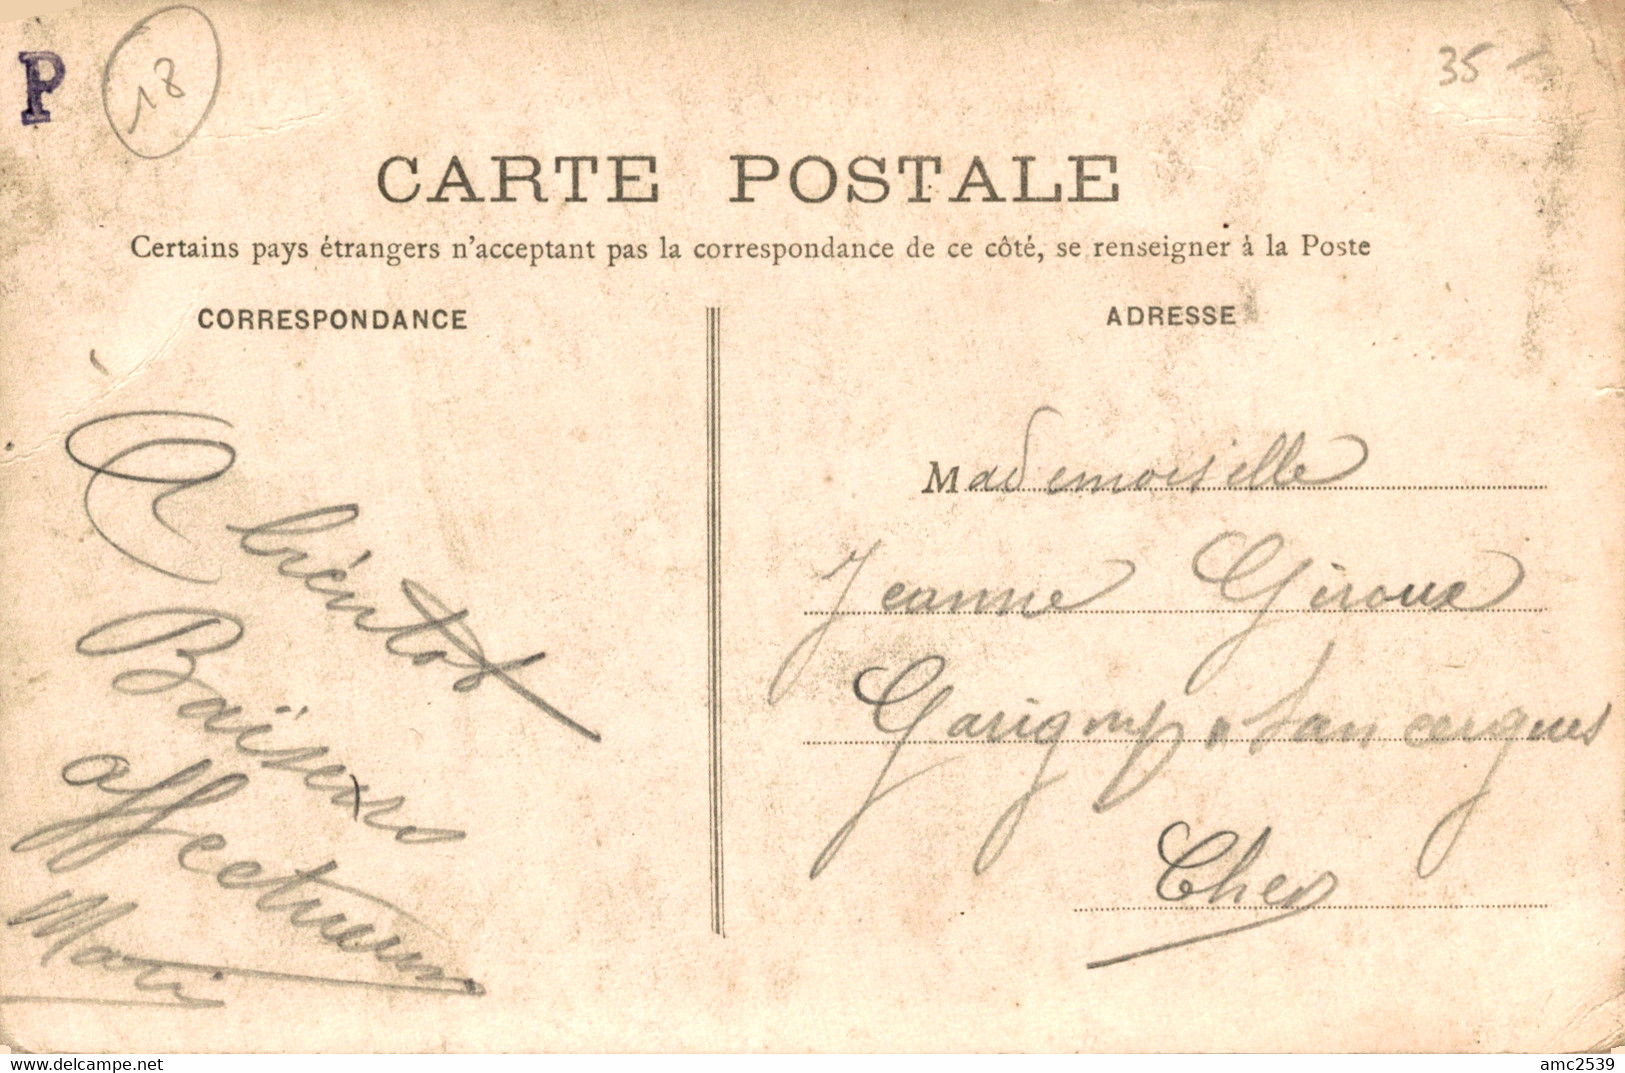 P
18
35
CARTE POSTALE
Certains pays étrangers n'acceptant pas la correspondance de ce côté, se renseigner à la Poste
CORRESPONDANCE
A biéntot
Baïsers
affectueux
ADRESSE
Mademoiselle
Jeanne Giroux
Garigny Sancergues
Cher
www.delcampe.net
amc2539